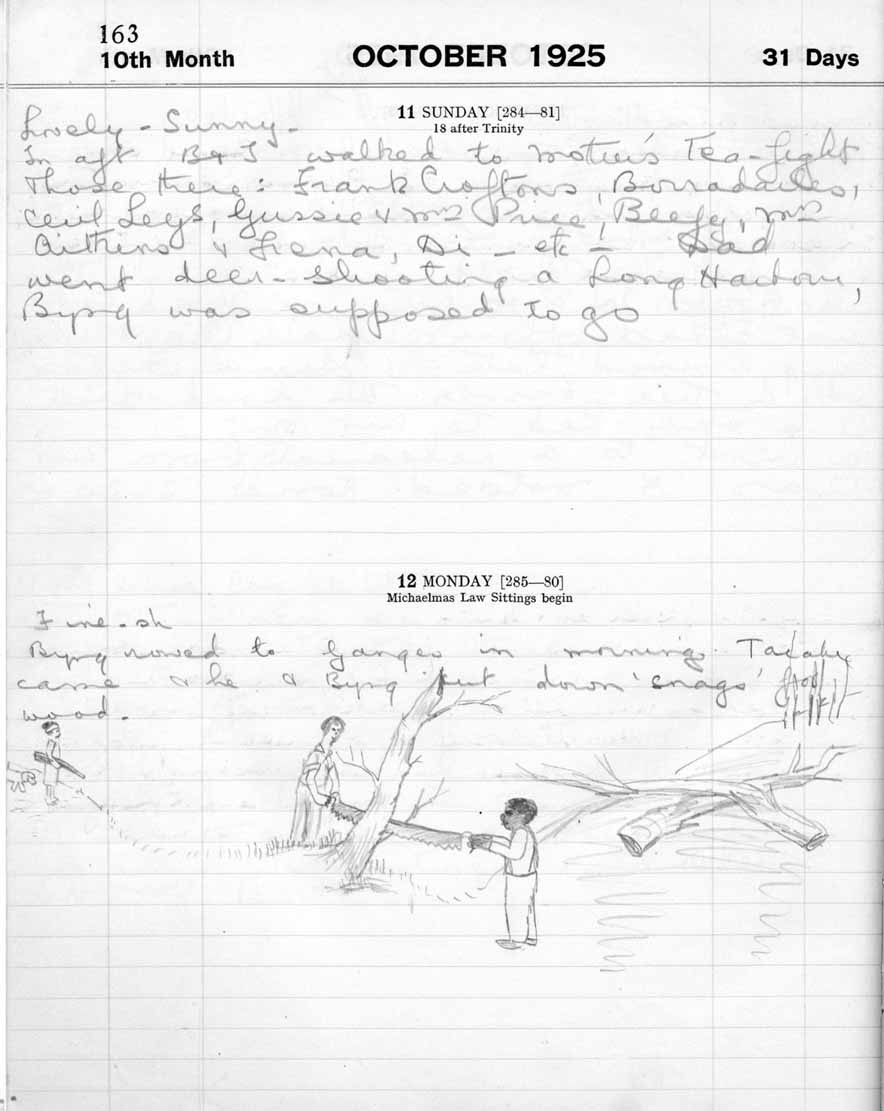 163
10th Month OCTOBER 1925 31 Days
11 SUNDAY [284—81]
18 after Trinity
Lovely - Sunny -
In aft B & I walked to Mother's Tea-fight
Those there: Frank Croftons, Borradailes,
Cecil Leys, Gussie & Mrs Price, Beefy, Mrs
Aitkens & Lrena, Di - etc - Dad
went deer-shooting a Long Harbour,
Bysg was supposed to go
12 MONDAY [285—80]
Michaelmas Law Sittings begin
Fine-ish
rowed to Ganges in morning.
came & he & put down 'snags' for
wood.